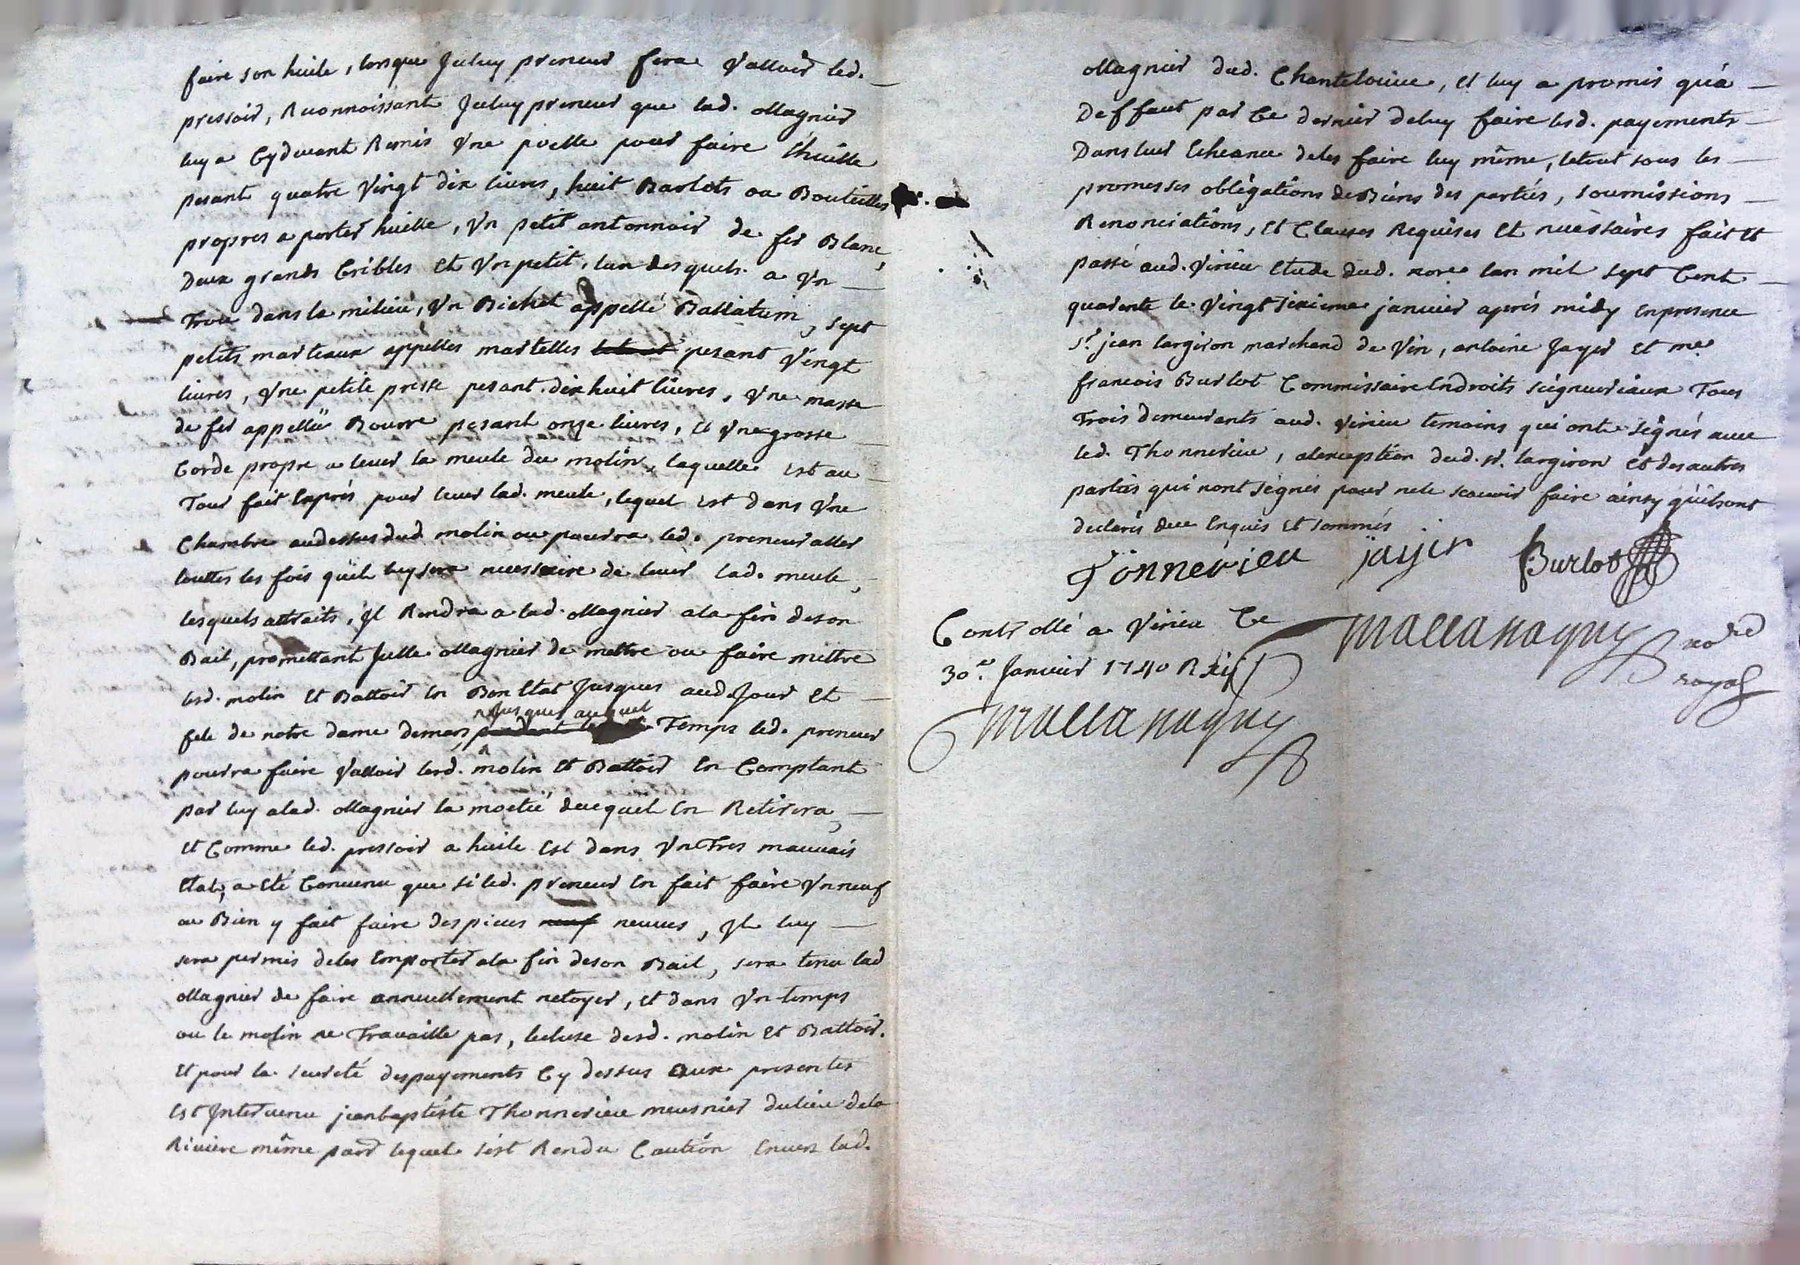 faire son huile, lorsque Jceluy preneur fera valloir led.
pressoir, Reconnoissant Jceluy preneur que lad. Magnier
luy a Cy devant Remis Vne poelle pour faire l'huille
pesant quatre Vingt dix livres, huit Barlets ou Bouteilles
propres a porter huille, Vn petit antonnoir de fer Blanc,
Deux grands Cribles et Vn petit, l'un desquels a Vn
Trou dans le milieu, Vn Bichet appellé Ballatum, sept
petits marteaux appellés martelles pesant Vingt
livres, Vne petite presse pesant dix huit livres, Vne masse
de fer appellée Bourre pesant onze livres, et Vne grosse
Corde propre a lever la meule du molin, laquelle est au
Tour fait Exprés pour lever lad. meule, lequel est dans Vne
Chambre audessus dud molin ou pourra led. preneur aller
touttes les fois qu'il luy sera necessaire de lever lad. meule,
lesquels attraits, Jl Rendra a lad. Magnier a la fin de son
Bail, promettant Jcelle Magnier de mettre ou faire mettre
lesd. molin et Battoir en Bon Etat Jusques aud. Jour et
fete de notre dame de mars, Jusques auquel Temps led. preneur
pourra faire valloir lesd. molin et Battoir En Comptant
par luy a lad. Magnier la moetié de ce quil en Retirera,
et Comme led. pressoir a huile est dans Vn Tres mauvais
Etat, a eté Convenu que si led. preneur en fait faire Vn neuf
ou Bien y fait faire des pieces neuf neuves, Jl luy
sera permis de les Emporter a la fin de son Bail, sera tenu lad
Magnier de faire annuellement netoyer, et dans Vn temps
ou le molin ne Travaille pas, lecluse desd. molin et Battoir.
Et pour la sureté des payements Cy dessus aux presentes
Est Intervenu jean baptiste Thonnerieu meusnier du lieu de la
Riviere même par lequel s'est Rendu Caution Envers lad.
Magnier dud. Chantelouive, et luy a promis qu'a
Deffaut par Ce dernier de luy faire lesd. payements
Dans leur Echeance de les faire luy même, le tout sous les
promesses obligations de Biens des parties, soumissions
Renonciations, et Clauses Requises et necessaires fait et
passé aud. Virieu Etude dud. nore lan mil sept Cent
quarente le Vingt sixieme janvier aprés midy En presence
sr. jean largiron marchand de Vin, antoine Jayer et me.
francois Burlot Commissaire En droits seigneuriaux Tous
Trois demeurants aud. Virieu temoins qui ont signés avec
led. Thonnerieu, a l'exception dud. sr. largiron et des autres
parties qui n'ont signés pour ne le scavoir faire ainsy qu'ils ont
declarés de ce Enquis et sommés
Tonnerieu jayer Burlot
Controllé a Virieu Ce
30e. Janvier 1740 R
royal